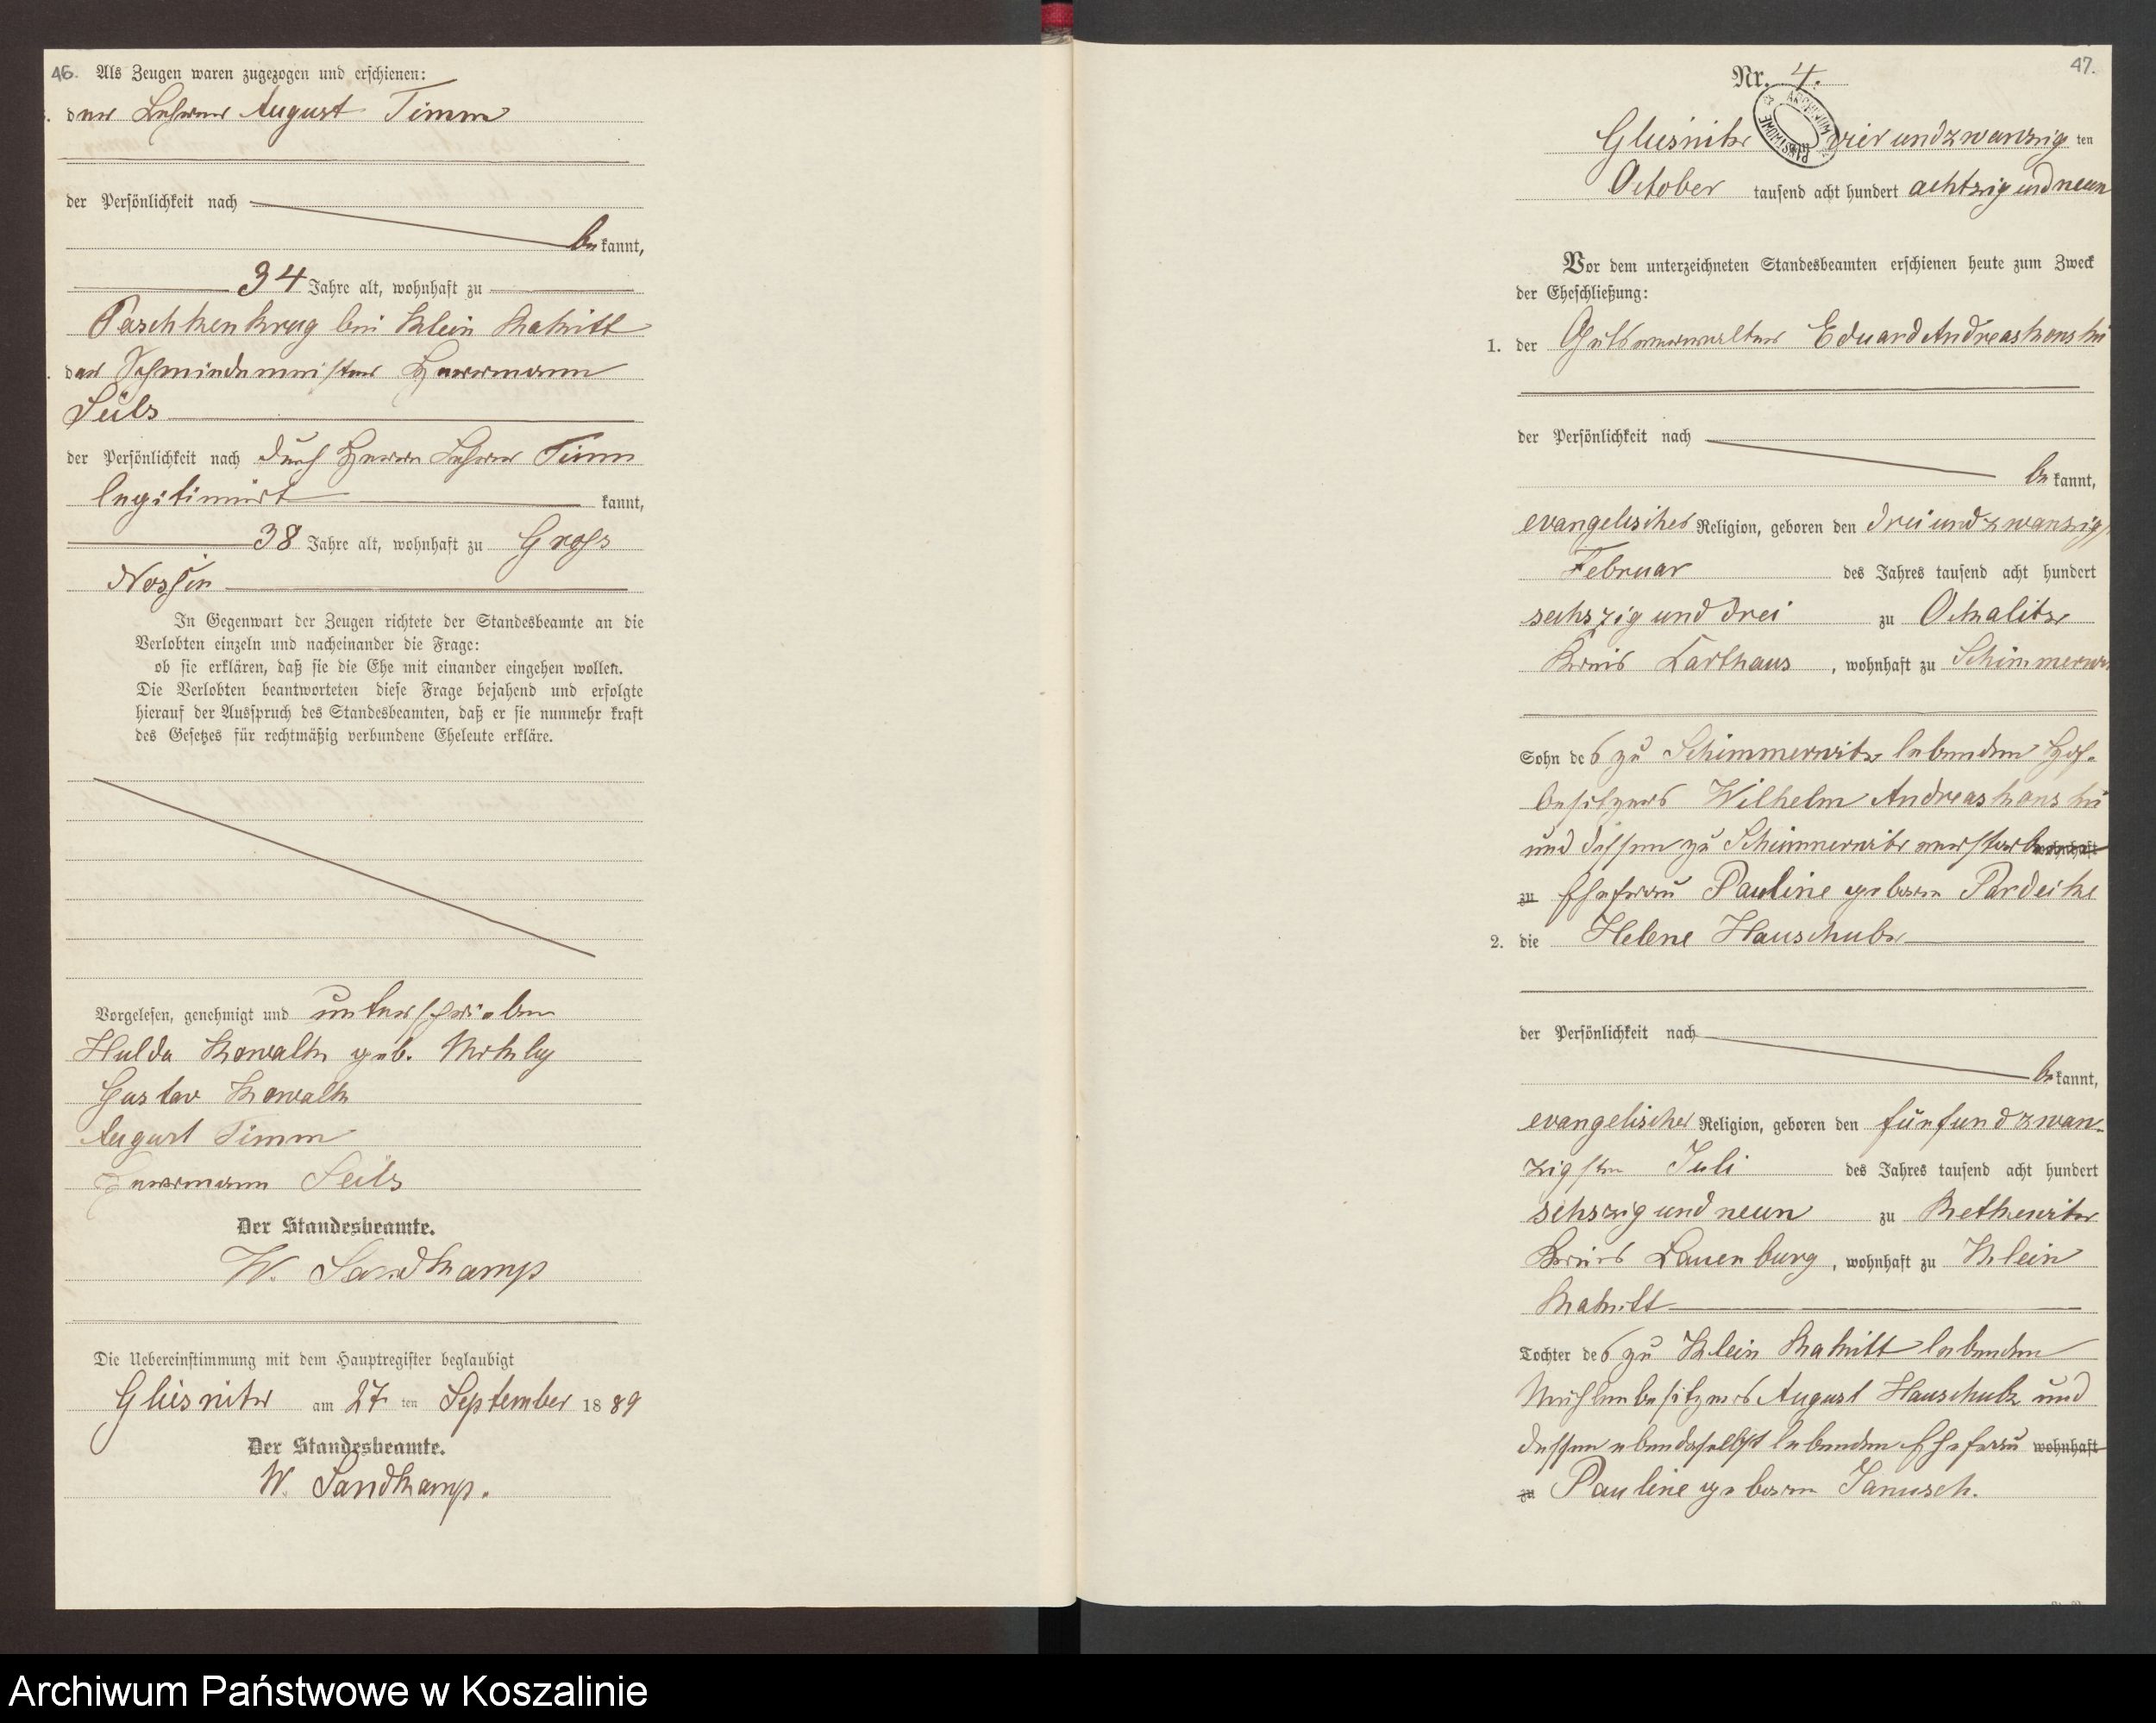 46. Als Zeugen waren zugezogen und erschienen:
der Lehrer August Timm
der Persönlichkeit nach
bekannt,
34 Jahre alt, wohnhaft zu
Paschkenkrug bei Klein Rakitt
der Schmiedemeister Herrmann
Seils
der Persönlichkeit nach durch Herrn Lehrer Timm
legitimirt kannt,
38 Jahre alt, wohnhaft zu Gross
Nossin
In Gegenwart der Zeugen richtete der Standesbeamte an die
Verlobten einzeln und nacheinander die Frage:
ob sie erklären, daß sie die Ehe mit einander eingehen wollen.
Die Verlobten beantworteten diese Frage bejahend und erfolgte
hierauf der Ausspruch des Standesbeamten, daß er sie nunmehr kraft
des Gesetzes für rechtmäßig verbundene Eheleute erkläre.
Vorgelesen, genehmigt und unterschrieben
Hulda Kowalk geb.
Gustav Kowalk
August Timm
Herrmann Seils
Der Standesbeamte.
W. Sandkamp
Die Uebereinstimmung mit dem Hauptregister beglaubigt
Gliesnitz am 27 ten September 18 89
Der Standesbeamte.
W. Sandkamp.
47.
Nr. 4.
Gliesnitz am vierundzwanzig ten
October tausend acht hundert achtzig und neun
Vor dem unterzeichneten Standesbeamten erschienen heute zum Zweck
der Eheschließung:
1. der Gutsverwalter Eduard Andreaskonski
der Persönlichkeit nach
bekannt,
evangelischer Religion, geboren den dreiundzwanzig
Februar des Jahres tausend acht hundert
sechszig und drei zu Ockalitz
Kreis Carthaus, wohnhaft zu Schimmerwi
Sohn des zu Schimmerwitz lebenden Hof-
besitzers Wilhelm Andreaskonski
und dessen zu Schimmerwitz verstorbenen wohnhaft
zu Ehefrau Pauline geboren Pardeike
2. die Helene Hauschulz
der Persönlichkeit nach
bekannt,
evangelischer Religion, geboren den fünfundzwan-
zigsten Juli des Jahres tausend acht hundert
sechszig und neun zu Rettkewitz
Kreis Lauenburg, wohnhaft zu Klein
Rakitt
Tochter des zu Klein Rakitt lebenden
Mühlenbesitzers August Hauschulz und
dessen ebendaselbst lebenden Ehefrau wohnhaft
zu Pauline geboren Janusch.
Archiwum Państwowe w Koszalinie